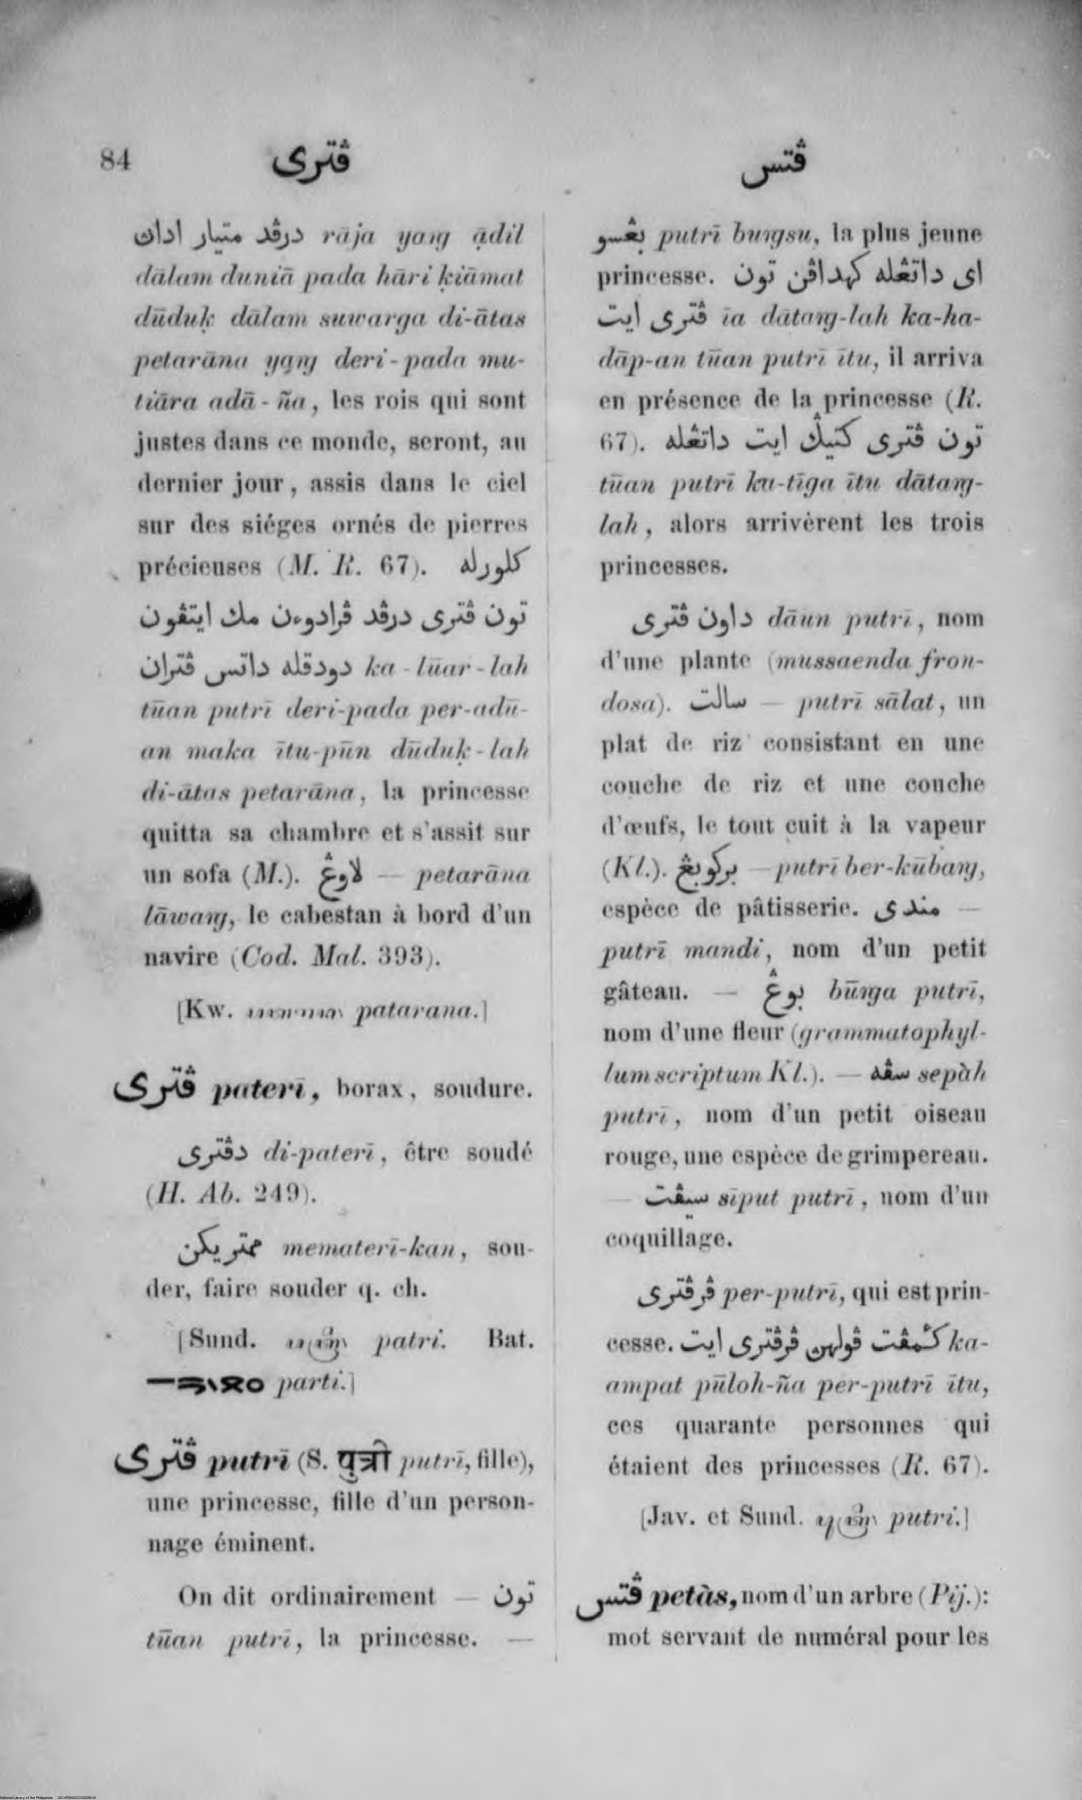 84 ڤتري ڤتس
درڤد متيار ادان rāja yaṅg ạ̄dil
dālam duniā pada hāri ḳiāmat
dūduḳ dālam suwarga di-ātas
petarāna yaṅg deri-pada mu-
tiāra adā-ña, les rois qui sont
justes dans ce monde, seront, au
dernier jour, assis dans le ciel
sur des siéges ornés de pierres
précieuses (M. R. 67). كلورله
تون ڤتري درڤد ڤرادوءن مك ايتڤون
دودقله داتس ڤتران ka-lūar-lah
tūan putrī deri-pada per-adū-
an maka ītu-pūn dūduḳ-lah
di-ātas petarāna, la princesse
quitta sa chambre et s'assit sur
un sofa (M.). لاوڠ — petarāna
lāwaṅg, le cabestan à bord d'un
navire (Cod. Mal. 393).
[Kw. patarana.]
ڤتري paterī, borax, soudure.
دڤتري di-paterī, être soudé
(H. Ab. 249).
ممتريكن memateri-kan, sou-
der, faire souder q. ch.
[Sund. patri. Bat.
parti.]
ڤتري putrī (S. पुत्री putrī, fille),
une princesse, fille d'un person-
nage éminent.
On dit ordinairement — تون
tūan putrī, la princesse. —
بڠسو putrī buṅgsu, la plus jeune
princesse. اي داتڠله كهداڤن تون
ڤتري ايت īa dātaṅg-lah ka-ha-
dāp-an tūan putrī ītu, il arriva
en présence de la princesse (R.
67). تون ڤتري كتيݢ ايت داتڠله
tūan putrī ku-tīga ītu dātaṅg-
lah, alors arrivèrent les trois
princesses.
داون ڤتري dāun putrī, nom
d'une plante (mussaenda fron-
dosa). سالت — putrī sālat, un
plat de riz consistant en une
couche de riz et une couche
d'œufs, le tout cuit à la vapeur
(Kl.). بركوبڠ — putrī ber-kūbaṅg,
espèce de pâtisserie. مندي —
putrī mandi, nom d'un petit
gâteau. — بوڠ būṅga putrī,
nom d'une fleur (grammatophyl-
lum scriptum Kl.). — سڤه sepàh
putrī, nom d'un petit oiseau
rouge, une espèce de grimpereau.
— سيڤت sīput putrī, nom d'un
coquillage.
ڤرڤتري per-putrī, qui est prin-
cesse. كأمڤت ڤولهن ڤرڤتري ايت ka-
ampat pūloh-ña per-putrī ītu,
ces quarante personnes qui
étaient des princesses (R. 67).
[Jav. et Sund. putri.]
ڤتس petàs, nom d'un arbre (Pij.):
mot servant de numéral pour les